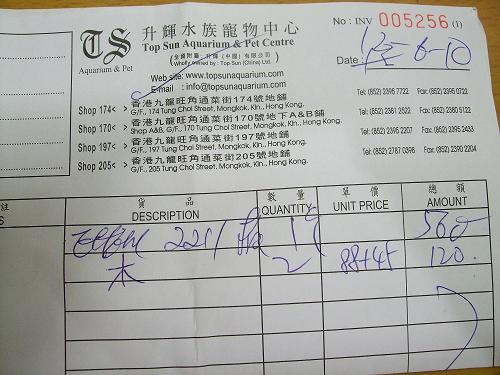 升輝水族寵物中心
No : INV 005256 (1)
TS
Aquarium & Pet
Top Sun Aquarium & Pet Centre
(全屬附屬:升輝(中國)有限公司)
Wholly owned by : Top Sun (China) Ltd.
Date :
6-10
Web site: www.topsunaquarium.com
E-mail : info@topsunaquarium.com
Shop 174< > 香港九龍旺角通菜街174號地鋪
G/F., 174 Tung Choi Street, Mongkok, Kln., Hong Kong.
Tel: (852) 2395 7722 Fax: (852) 2395 0722
Shop 170< > 香港九龍旺角通菜街170號地下A&B鋪
Shop A&B, G/F., 170 Tung Choi Street, Mongkok, Kln., Hong Kong.
Tel: (852) 2381 2522 Fax: (852) 2380 5122
Shop 197< > 香港九龍旺角通菜街197號地鋪
G/F., 197 Tung Choi Street, Mongkok, Kln., Hong Kong.
Tel: (852) 2395 2207 Fax: (852) 2395 2433
Shop 205< > 香港九龍旺角通菜街205號地鋪
G/F., 205 Tung Choi Street, Mongkok, Kln., Hong Kong.
Tel: (852) 2787 0398 Fax: (852) 2390 2204
註 貨 品 數 量 單 價 總 額
S DESCRIPTION QUANTITY UNIT PRICE AMOUNT
2211 560
木 2 88+45 120